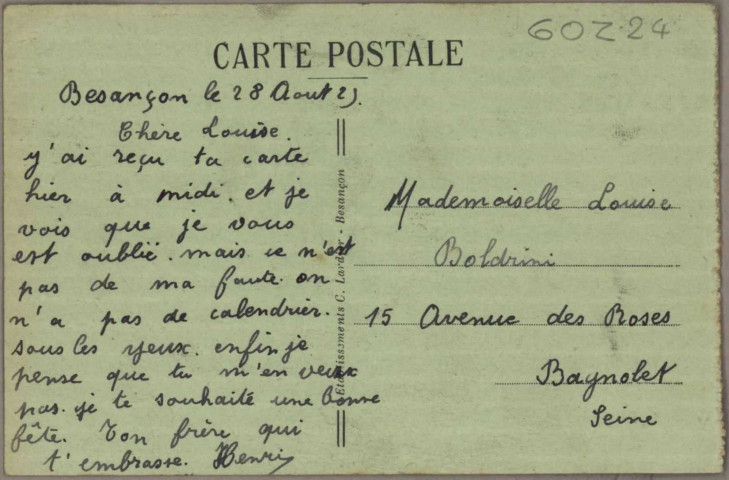 60Z.24
CARTE POSTALE
Besançon le 28 Aout 29.
Chère Louise.
y'ai reçu ta carte
hier à midi. et je
vois que je vous
est oublié. mais ce n'est
pas de ma faute on
n'a pas de calendrier.
sous les yeux. enfin je
pense que tu m'en veux
pas. je te souhaite une bonne
fête. Ton frère qui
t'embrasse. Henri
Etablissements C. Lardier - Besançon
Mademoiselle Louise
Boldrini
15 Avenue des Roses
Bagnolet
Seine